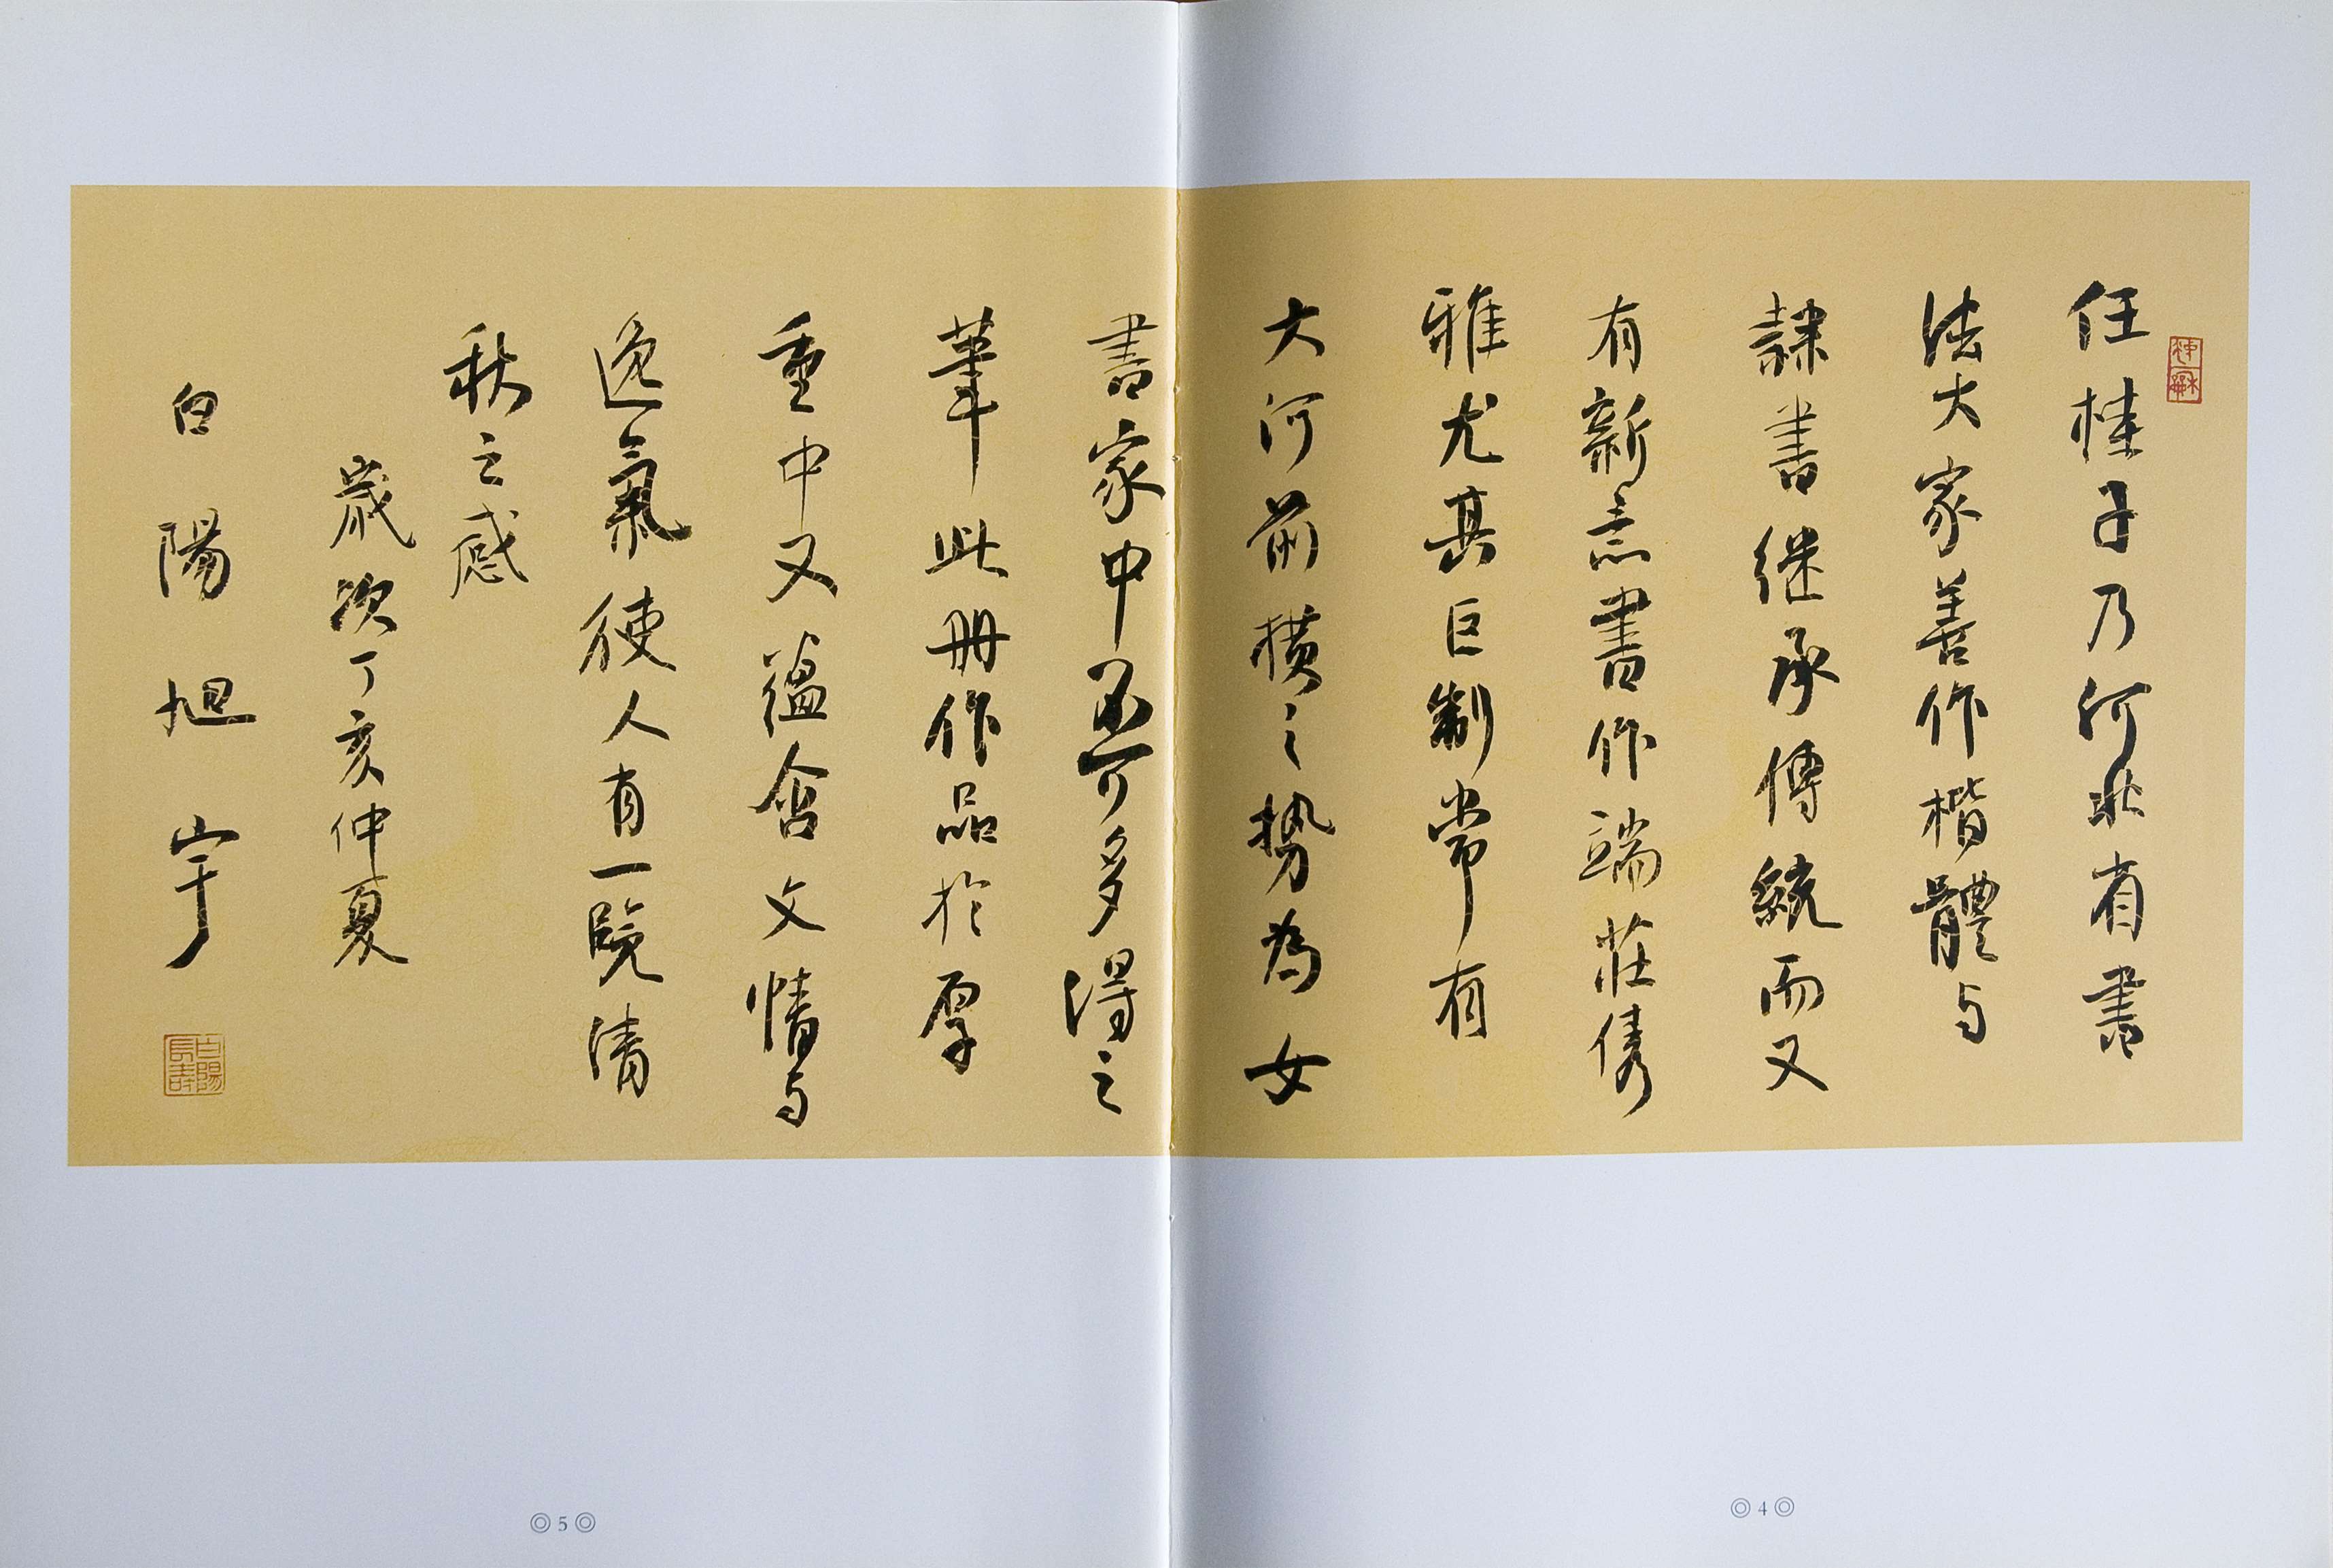 任桂子乃河北省書
法大家善作楷體与
隸書继承傳統而又
有新意書作端莊儁
雅尤其巨制常有
大河前横之势為女
書家中不可多得之
筆此冊作品於厚
重中又蕴含文情与
逸氣使人有一覽清
秋之感
歲次丁亥仲夏
白陽旭宇
白陽長壽
◎4◎
◎5◎